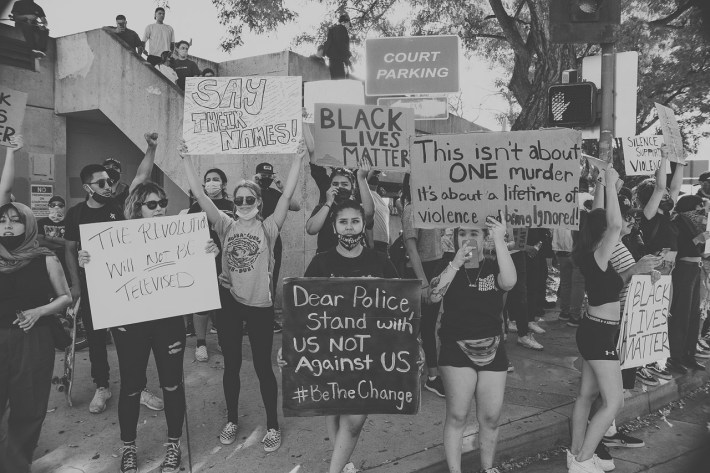 COURT
PARKING
SAY
THEIR
NAMES!
BLACK
LIVES
MATTER
This isn't about
ONE murder
It's about a lifetime of
violence and being Ignored!
SILENCE
SUPPORTS
VIOLENCE
THE REVOLUTION
Will NOT BE
TELEVISED
Dear Police,
Stand with
US NOT
Against US
#BeTheChange
BLACK
LIVES
MATTER
NO